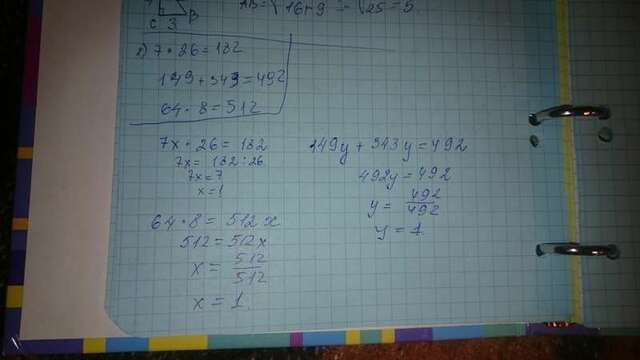 AB = √16+9 = √25 = 5.
C 3 B
2) 7 · 26 = 182
149 + 343 = 492
64 · 8 = 512
7x · 26 = 182
7x = 182 : 26
7x = 7
x = 1
149y + 343y = 492
492y = 492
y = 492/492
y = 1
64 · 8 = 512x
512 = 512x
x = 512/512
x = 1.